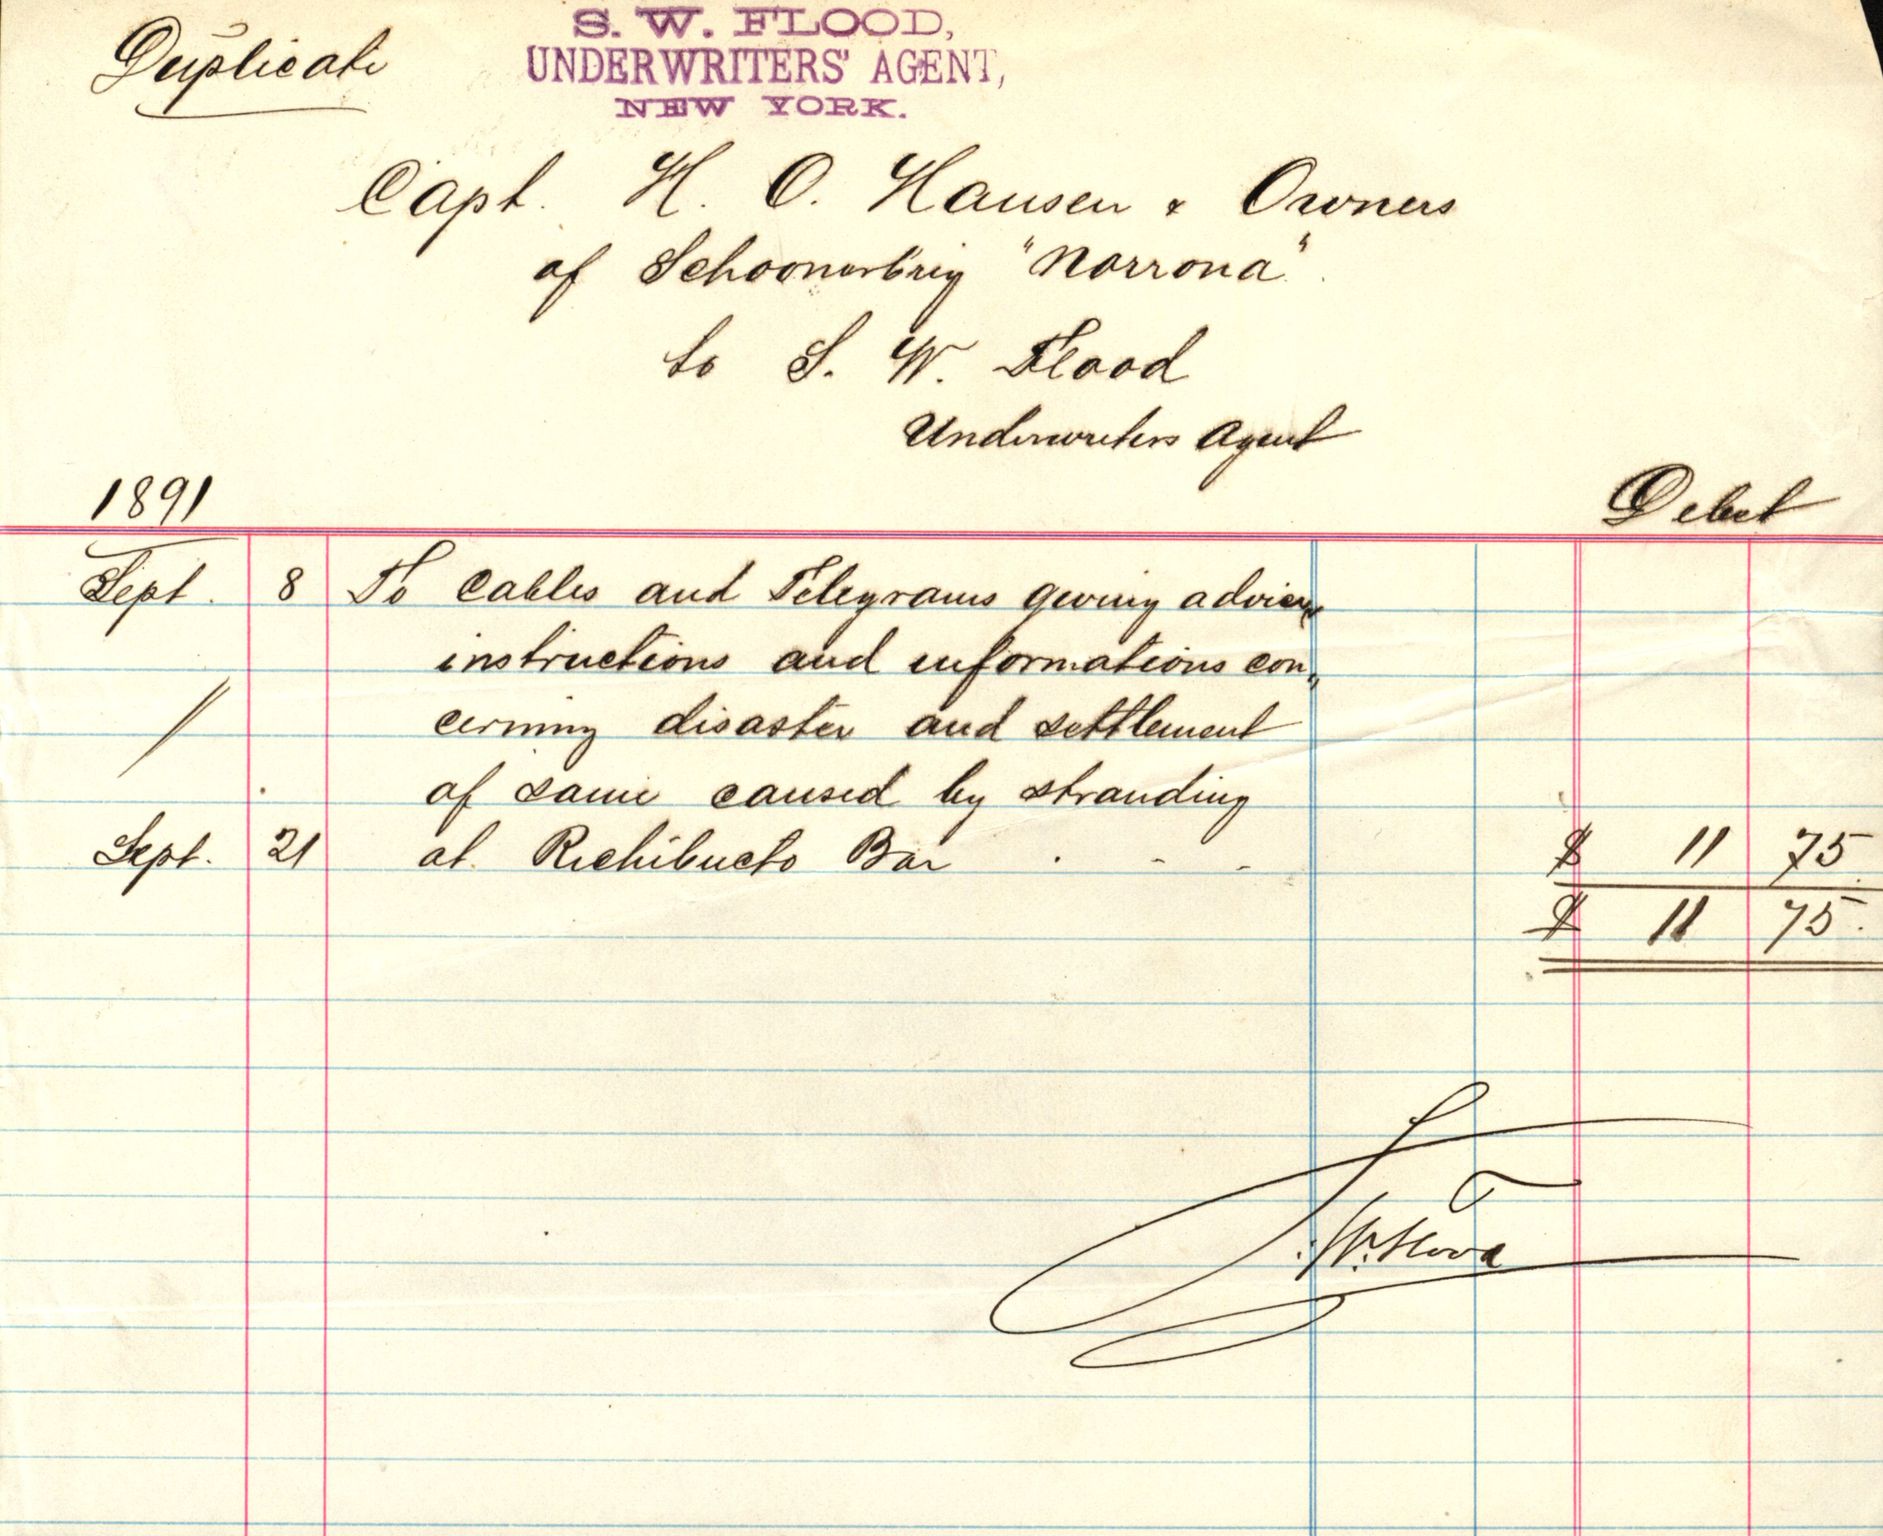 Duplicate
S. W. FLOOD,
UNDERWRITERS' AGENT,
NEW YORK.
Capt. H. O. Hansen & Owners
of Schoonerbrig "Norrona".
to S. W. Flood
Underwriters Agent
1891 Debet
Sept. 8 To Cables and Telegrams geving advices
instructions and informations con„
cerning disaster and settlement
of same caused by stranding
Sept. 21 at Richibucto Bar . - - $ 11 75
$ 11 75.
S. W. Flood